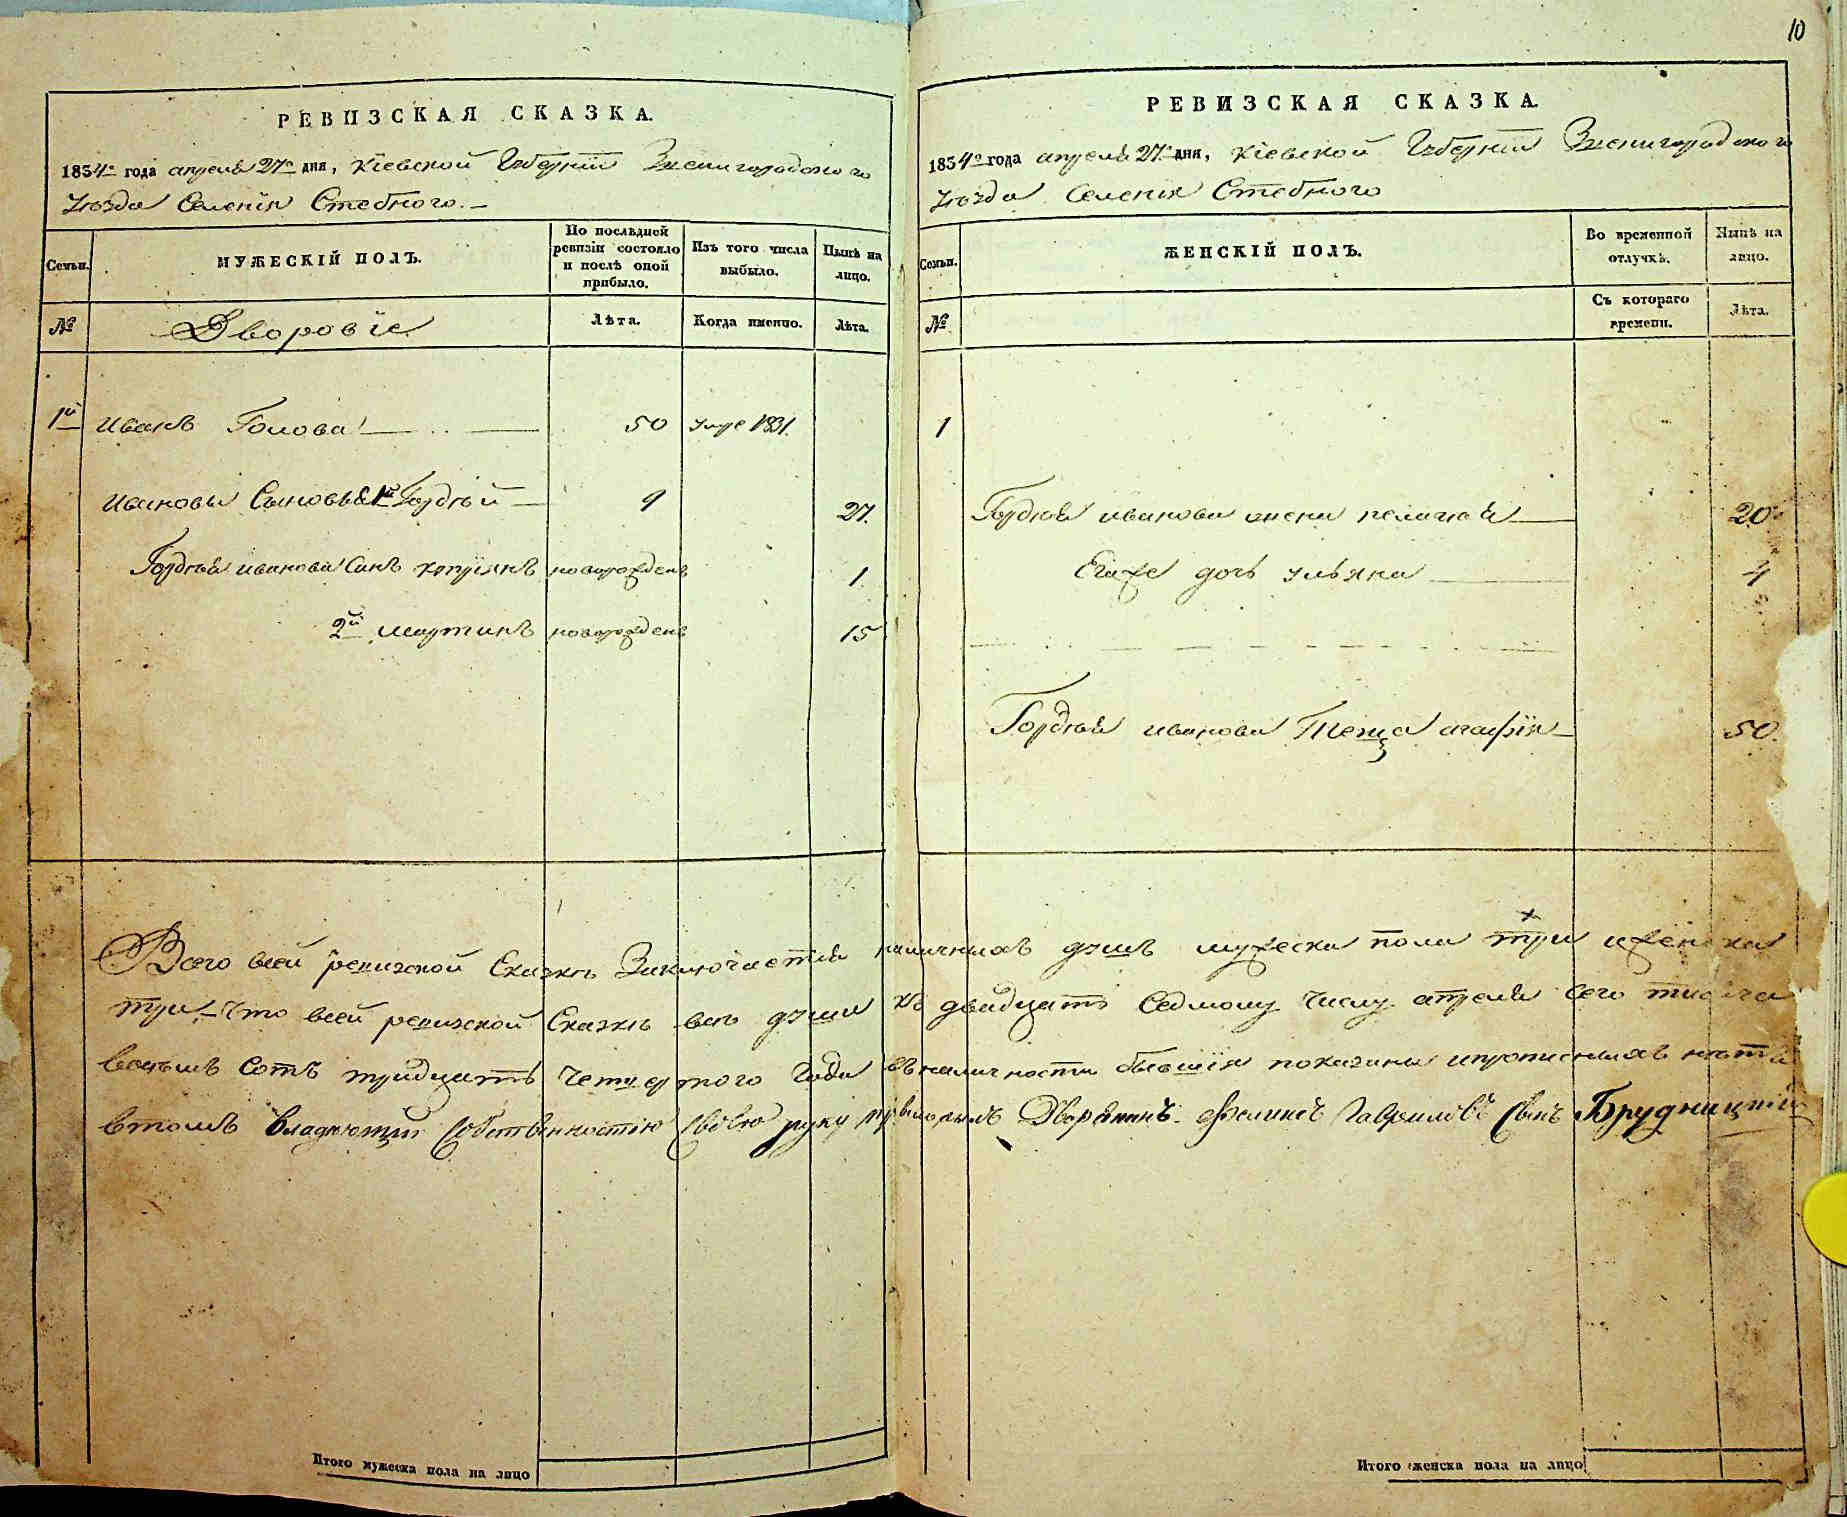 РЕВИЗСКАЯ СКАЗКА.
1834го года апреля 27го дня, Кіевской Губерніи Звенигородского
Уѣзда Селенія Стебного.
Семьи.
МУЖЕСКІЙ ПОЛЪ.
По послѣдней ревизіи состояло и послѣ оной прибыло.
Изъ того числа выбыло.
Нынѣ на лицо.
№
Дворовіе
Лѣта.
Когда именно.
Лѣта.
1й Иванъ Голова 50 умре 1831.
Иванова Сыновья 1й Гордѣй 9 27.
Гордѣя Иванова Синъ новорожденъ 1
2й Мартинъ новорожденъ 15
10
РЕВИЗСКАЯ СКАЗКА.
1834го года апреля 27го дня, Кіевской Губерніи Звенигородского
Уѣзда Селенія Стебного
Семьи.
ЖЕНСКІЙ ПОЛЪ.
Во временной отлучкѣ.
Нынѣ на лицо.
№
Съ котораго времени.
Лѣта.
1
Гордѣя Иванова жена Пелагия 20
Егоже дочь Ульяна 4
Гордѣя Иванова Теща Агафія 50.
Всего всей ревизской Сказкѣ Заключается наличныхъ душъ мужеска пола три иженска
три Что всей ревизской Сказкѣ всѣ души къ двадцать Седмому Числу апреля сего тисяча
восѣмъ Сотъ тридцать Четвертого Года въналичности бывшія показаны ипрописныхъ нѣтъ
втомъ владѣющій Собственностію Своею руку Дворянинъ Феликсъ Гавриловъ Синъ Брудницкій
Итого мужеска пола на лицо
Итого женска пола на лицо